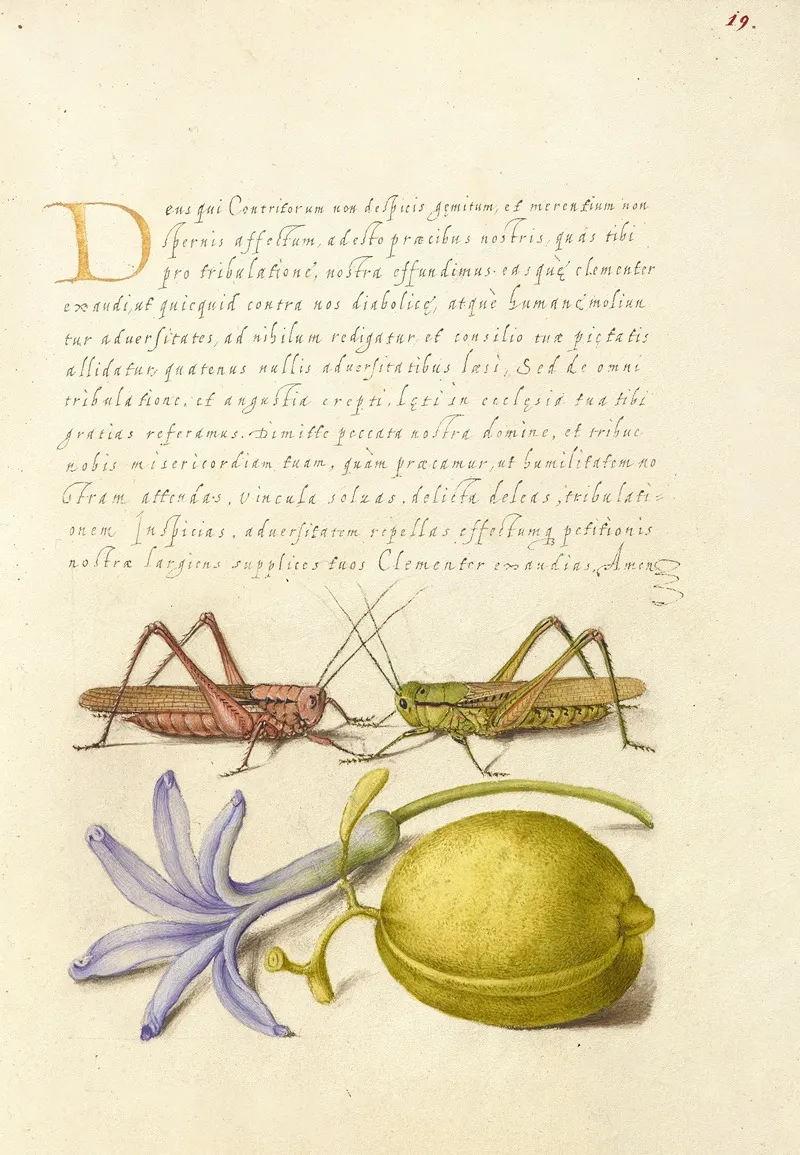 19.
Deus qui Contritorum non despicis gemitum, et merentium non
spernis affectum, adesto præcibus nostris, quas tibi
pro tribulatione, nostra effundimus. easquè clementer
exaudi, ut quicquid contra nos diabolicę, atquè humanę moliun
tur adversitates, ad nihilum redigatur et consilio tuæ pietatis
allidatur, quatenus nullis adversitatibus læsi, Sed de omni
tribulatione, et angustia erepti, lęti in ecclęsia tua tibi
gratias referamus. Dimitte peccata nostra domine, et tribue
nobis misericordiam tuam, quàm præcamur, ut humilitatem no
stram attendas, vincula solvas, delicta deleas, tribulati=
onem Inspicias, adversitatem repellas effectumq petitionis
nostræ largiens supplices tuos Clementer exaudias, Amen